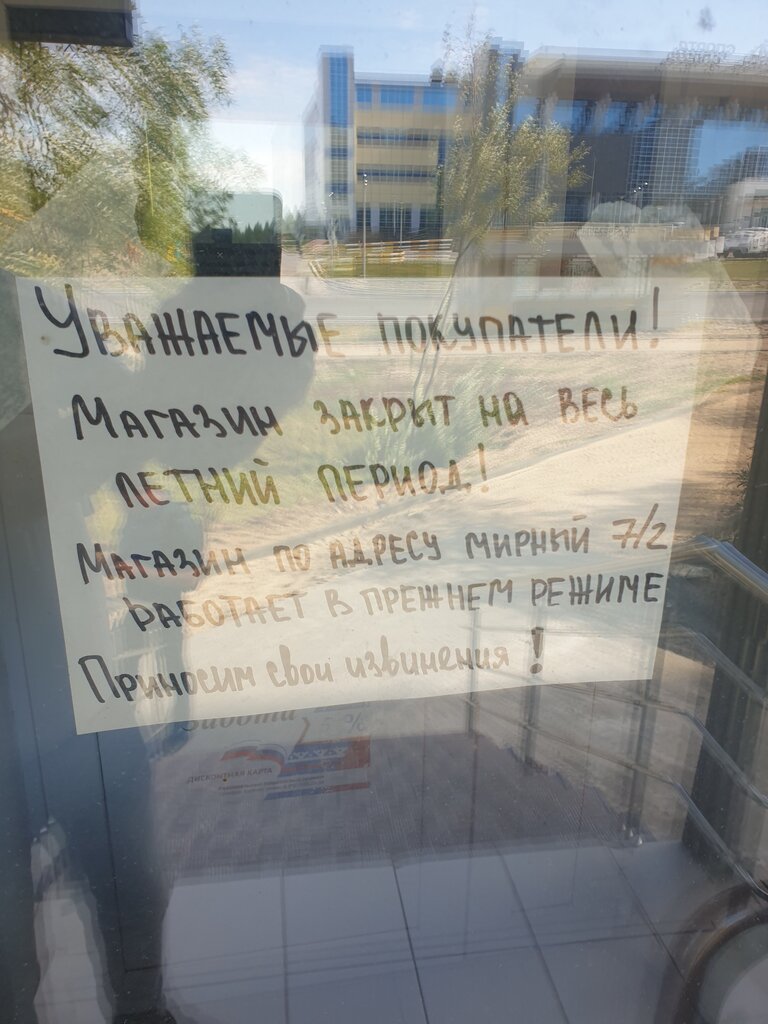 Уважаемые покупатели!
Магазин закрыт на весь
летний период!
Магазин по адресу мирный 7/2
работает в прежнем режиме
Приносим свои извинения!
Забота
5%
ДИСКОНТНАЯ КАРТА